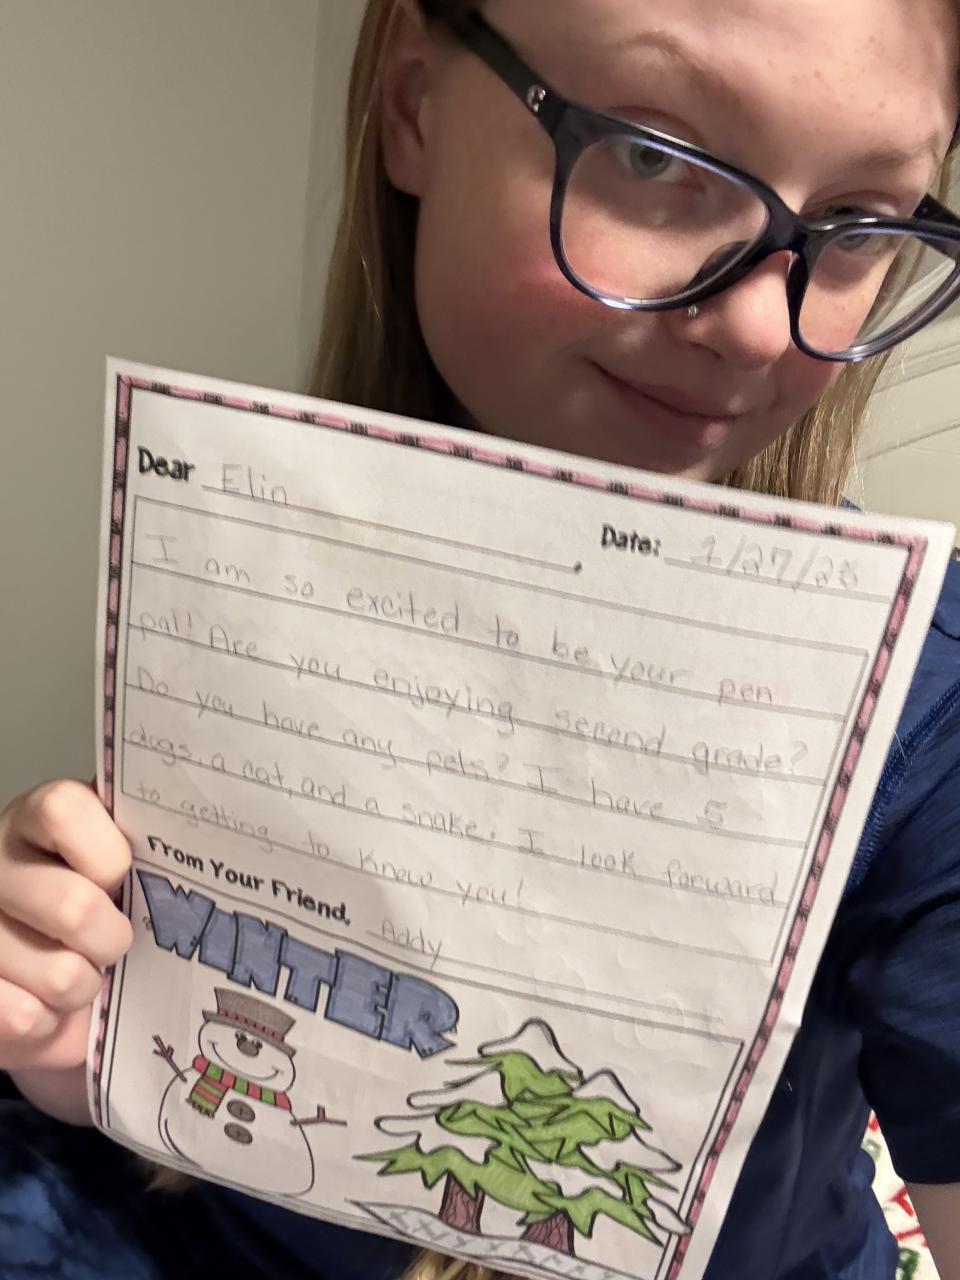 Dear Elin,
Date: 1/27/26
I am so excited to be your pen
pal! Are you enjoying second grade?
Do you have any pets? I have 5
dogs, a cat, and a snake. I look forward
to getting to know you!
From Your Friend, Addy
WINTER